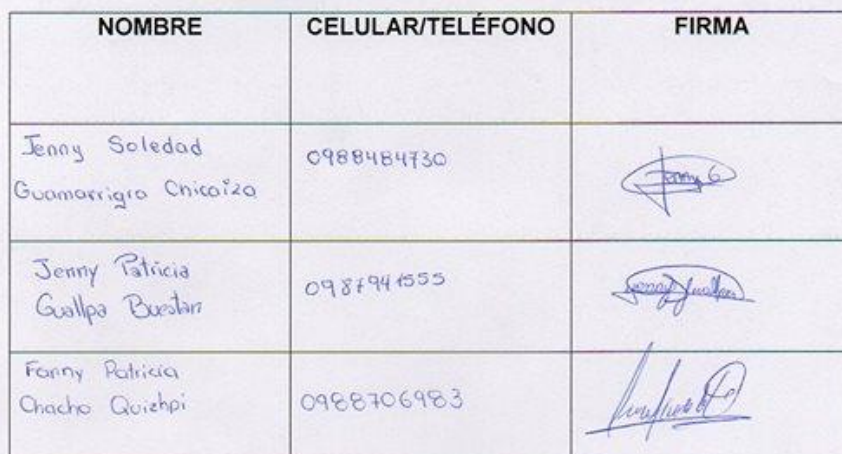 NOMBRE CELULAR/TELÉFONO FIRMA
Jenny Soledad
Guamarrigra Chicaiza
0988484730
Jenny G
Jenny Patricia
Guallpa Buestan
0987941555
Jenny Guallpa
Fanny Patricia
Chacho Quizhpi
0988706983